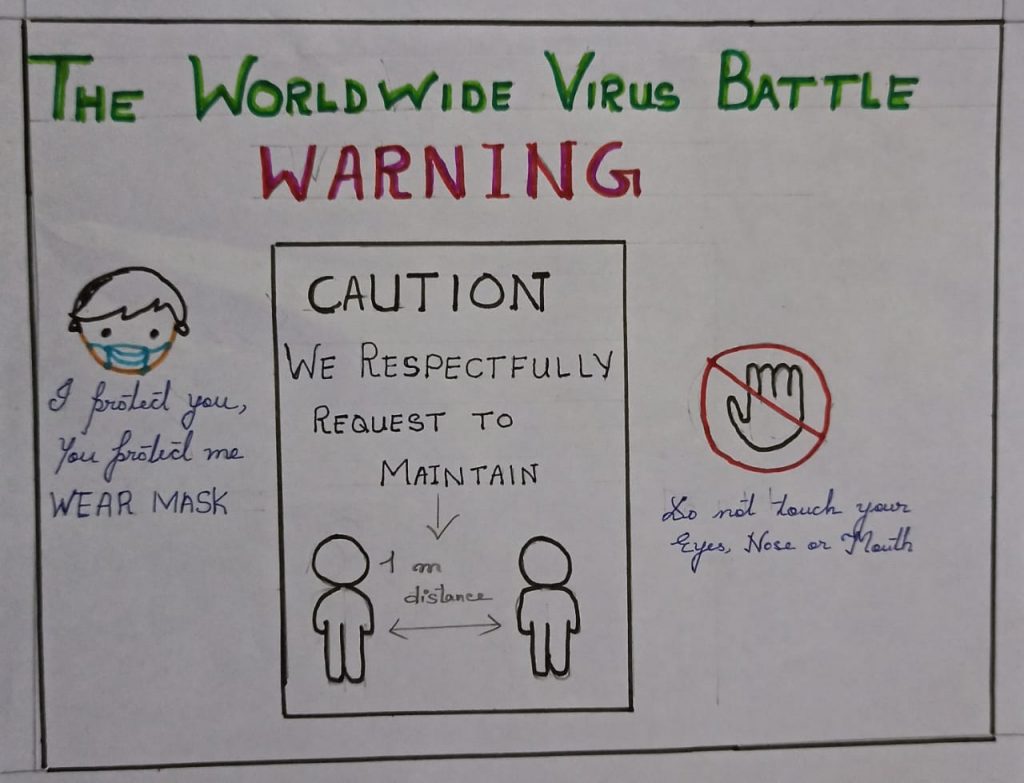 THE WORLDWIDE VIRUS BATTLE
WARNING
I protect you,
You protect me
WEAR MASK
CAUTION
WE RESPECTFULLY
REQUEST TO
MAINTAIN
1 m
distance
Do not touch your
Eyes, Nose or Mouth